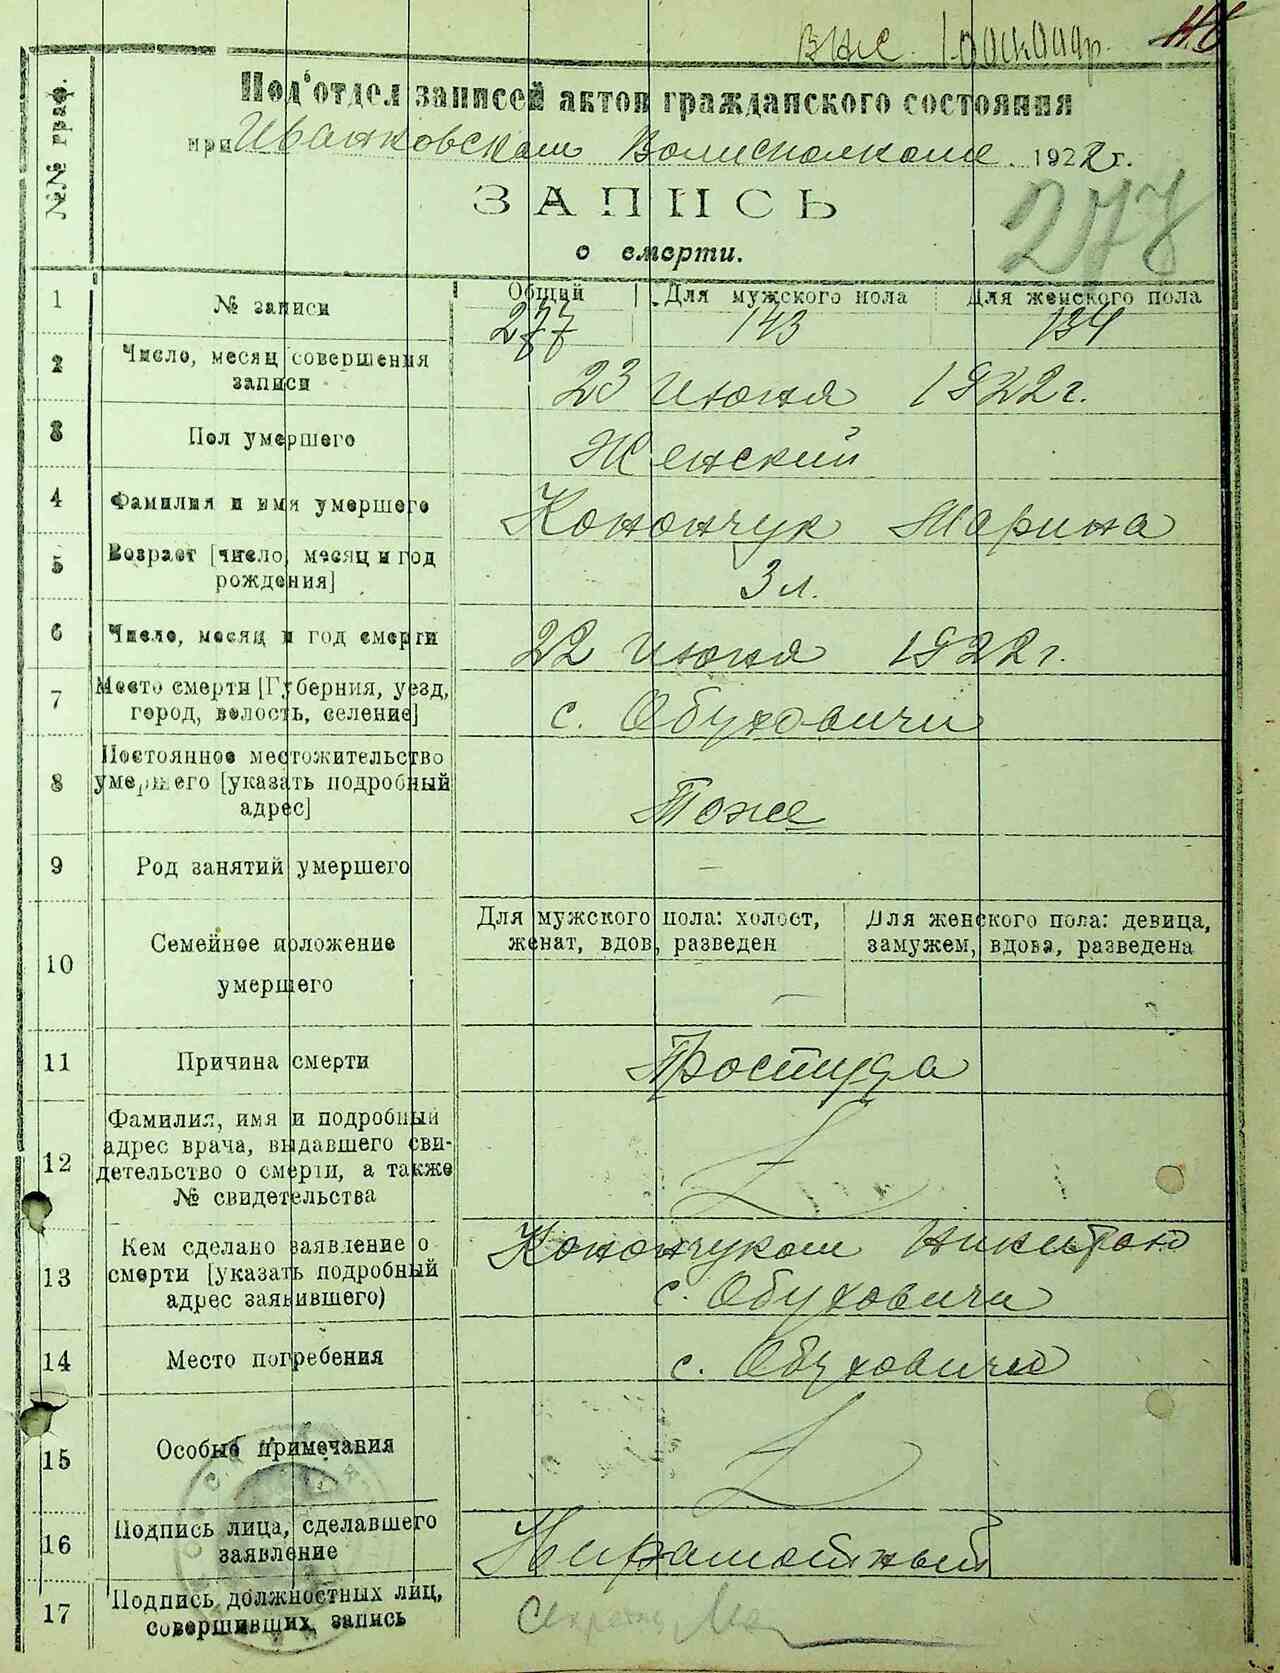 внс.
№№ граф.
Под'отдел записей актов гражданского состояния
при Иванковском Волисполкоме 1922 г.
ЗАПИСЬ
277
о смерти.
1 № записи Общий Для мужского пола Для женского пола
277 143 134
2 Число, месяц совершения
записи
23 июня 1922 г.
3 Пол умершего Женский
4 Фамилия и имя умершего Конончук Марина
5 Возраст [число, месяц и год
рождения]
3 л.
6 Число, месяц и год смерти 22 июня 1922 г.
7 Место смерти [Губерния, уезд,
город, волость, селение]
с. Обуховичи
8 Постоянное местожительство
умершего [указать подробный
адрес]
Тоже
9 Род занятий умершего —
10 Семейное положение
умершего
Для мужского пола: холост,
женат, вдов, разведен
Для женского пола: девица,
замужем, вдова, разведена
11 Причина смерти Простуда
12 Фамилия, имя и подробный
адрес врача, выдавшего сви-
детельство о смерти, а также
№ свидетельства
13 Кем сделано заявление о
смерти [указать подробный
адрес заявившего)
Конончуком Никитою
с. Обуховичи
14 Место погребения с. Обуховичи
15 Особые примечания
16 Подпись лица, сделавшего
заявление
Ниграмотный
17 Подпись должностных лиц,
совершивших запись
Секретарь